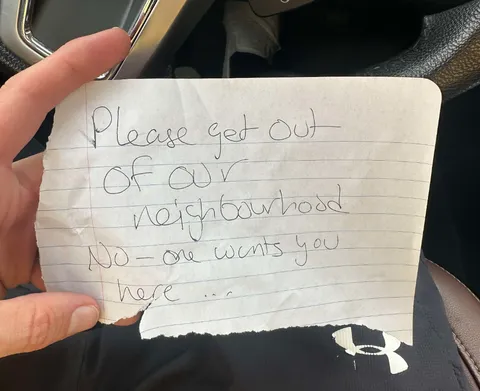 Please get out
of our
neighbourhood
No-one wants you
here ...